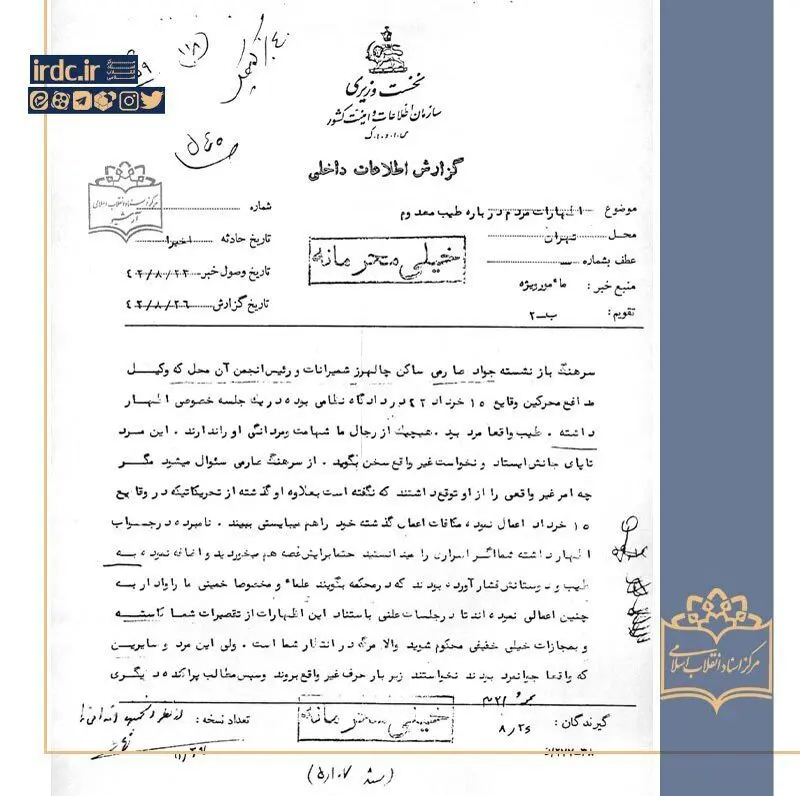 irdc.ir
(۱۱۸)
نخست وزیری
سازمان اطلاعات و امنیت کشور
س.ا.و.ا.ک
گزارش اطلاعات داخلی
مرکز اسناد انقلاب اسلامی
آرشیو
موضوع اظهارات مردم درباره طیب معدوم
محل تهران
عطف بشماره
منبع خبر : مأمور ویژه
تقویم: ب-۲
شماره
تاریخ حادثه اخیرا
تاریخ وصول خبر ۴۲/۸/۲۳
تاریخ گزارش ۴۲/۸/۲۶
خیلی محرمانه
سرهنگ باز نشسته جواد صارمی ساکن چالهرز شمیرانات و رئیس انجمن آن محل که وکیل
مدافع محرکین وقایع ۱۵ خرداد ۴۲ در دادگاه نظامی بوده در یک جلسه خصوصی اظهار
داشته . طیب واقعا مرد بود . هیچیک از رجال ما شهامت ومردانگی او را ندارند . این مرد
تا پای جانش ایستاد و نخواست غیر واقع سخن بگوید . از سرهنگ صارمی سئوال میشود مگر
چه امر غیر واقعی را از او توقع داشتند که نگفته است بعلاوه او گذشته از تحریکاتیکه در وقایع
۱۵ خرداد اعمال نموده مکافات اعمال گذشته خود را هم میبایستی ببیند . نامبرده در جواب
اظهار داشته شما اگر اسراری را میدانستید حتما برایش غصه هم میخوردید و اضافه نموده به
طیب و دوستانش فشار آورده بودند که در محکمه بگویند علماء و مخصوصا خمینی ما را وادار به
چنین اعمالی نموده اند تا در جلسات علنی باستناد این اظهارات از تقصیرات شما کاسته
و بمجازات خیلی خفیفی محکوم شوید والا مرگ در انتظار شما است . ولی این مرد و سایرین
که واقعا جوانمرد بودند نخواستند زیر بار حرف غیر واقع بروند وسپس مطالب پراکنده دیگری
گیرندگان :
۸/۲۶
خیلی محرمانه
تعداد نسخه :
(سند ۵۱۰۷)
مرکز اسناد انقلاب اسلامی